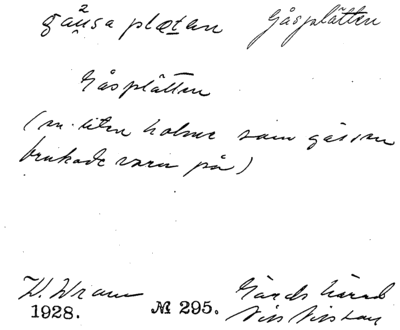 gåusa plætan Gåsplätten
Gåsplätten
(en liten holme som gässen
brukade vara på)
W. Wram Gärds härad
1928. № 295. Nils Nilsson